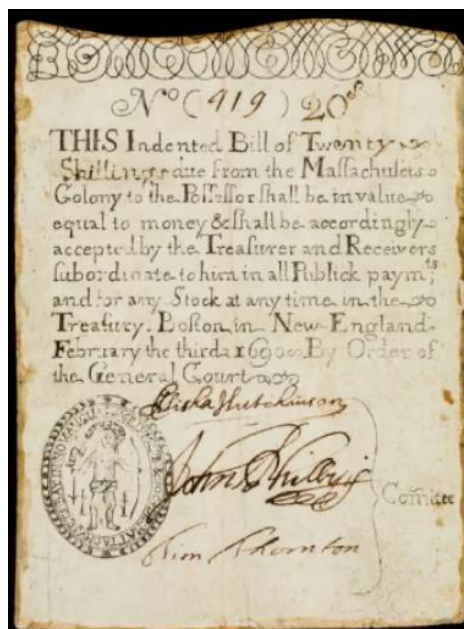 No (919) 20s
THIS Indented Bill of Twenty
Shillings due from the Massachusets
Colony to the Possessor shall be in value
equal to money & shall be accordingly
accepted by the Treasurer and Receivers
subordinate to him in all Publick paymts
and for any Stock at any time in the
Treasury. Boston in New England
February the third 1690 By Order of
the General Court
Elisha Hutchinson
John Phillips
Comitee
Tim Thornton